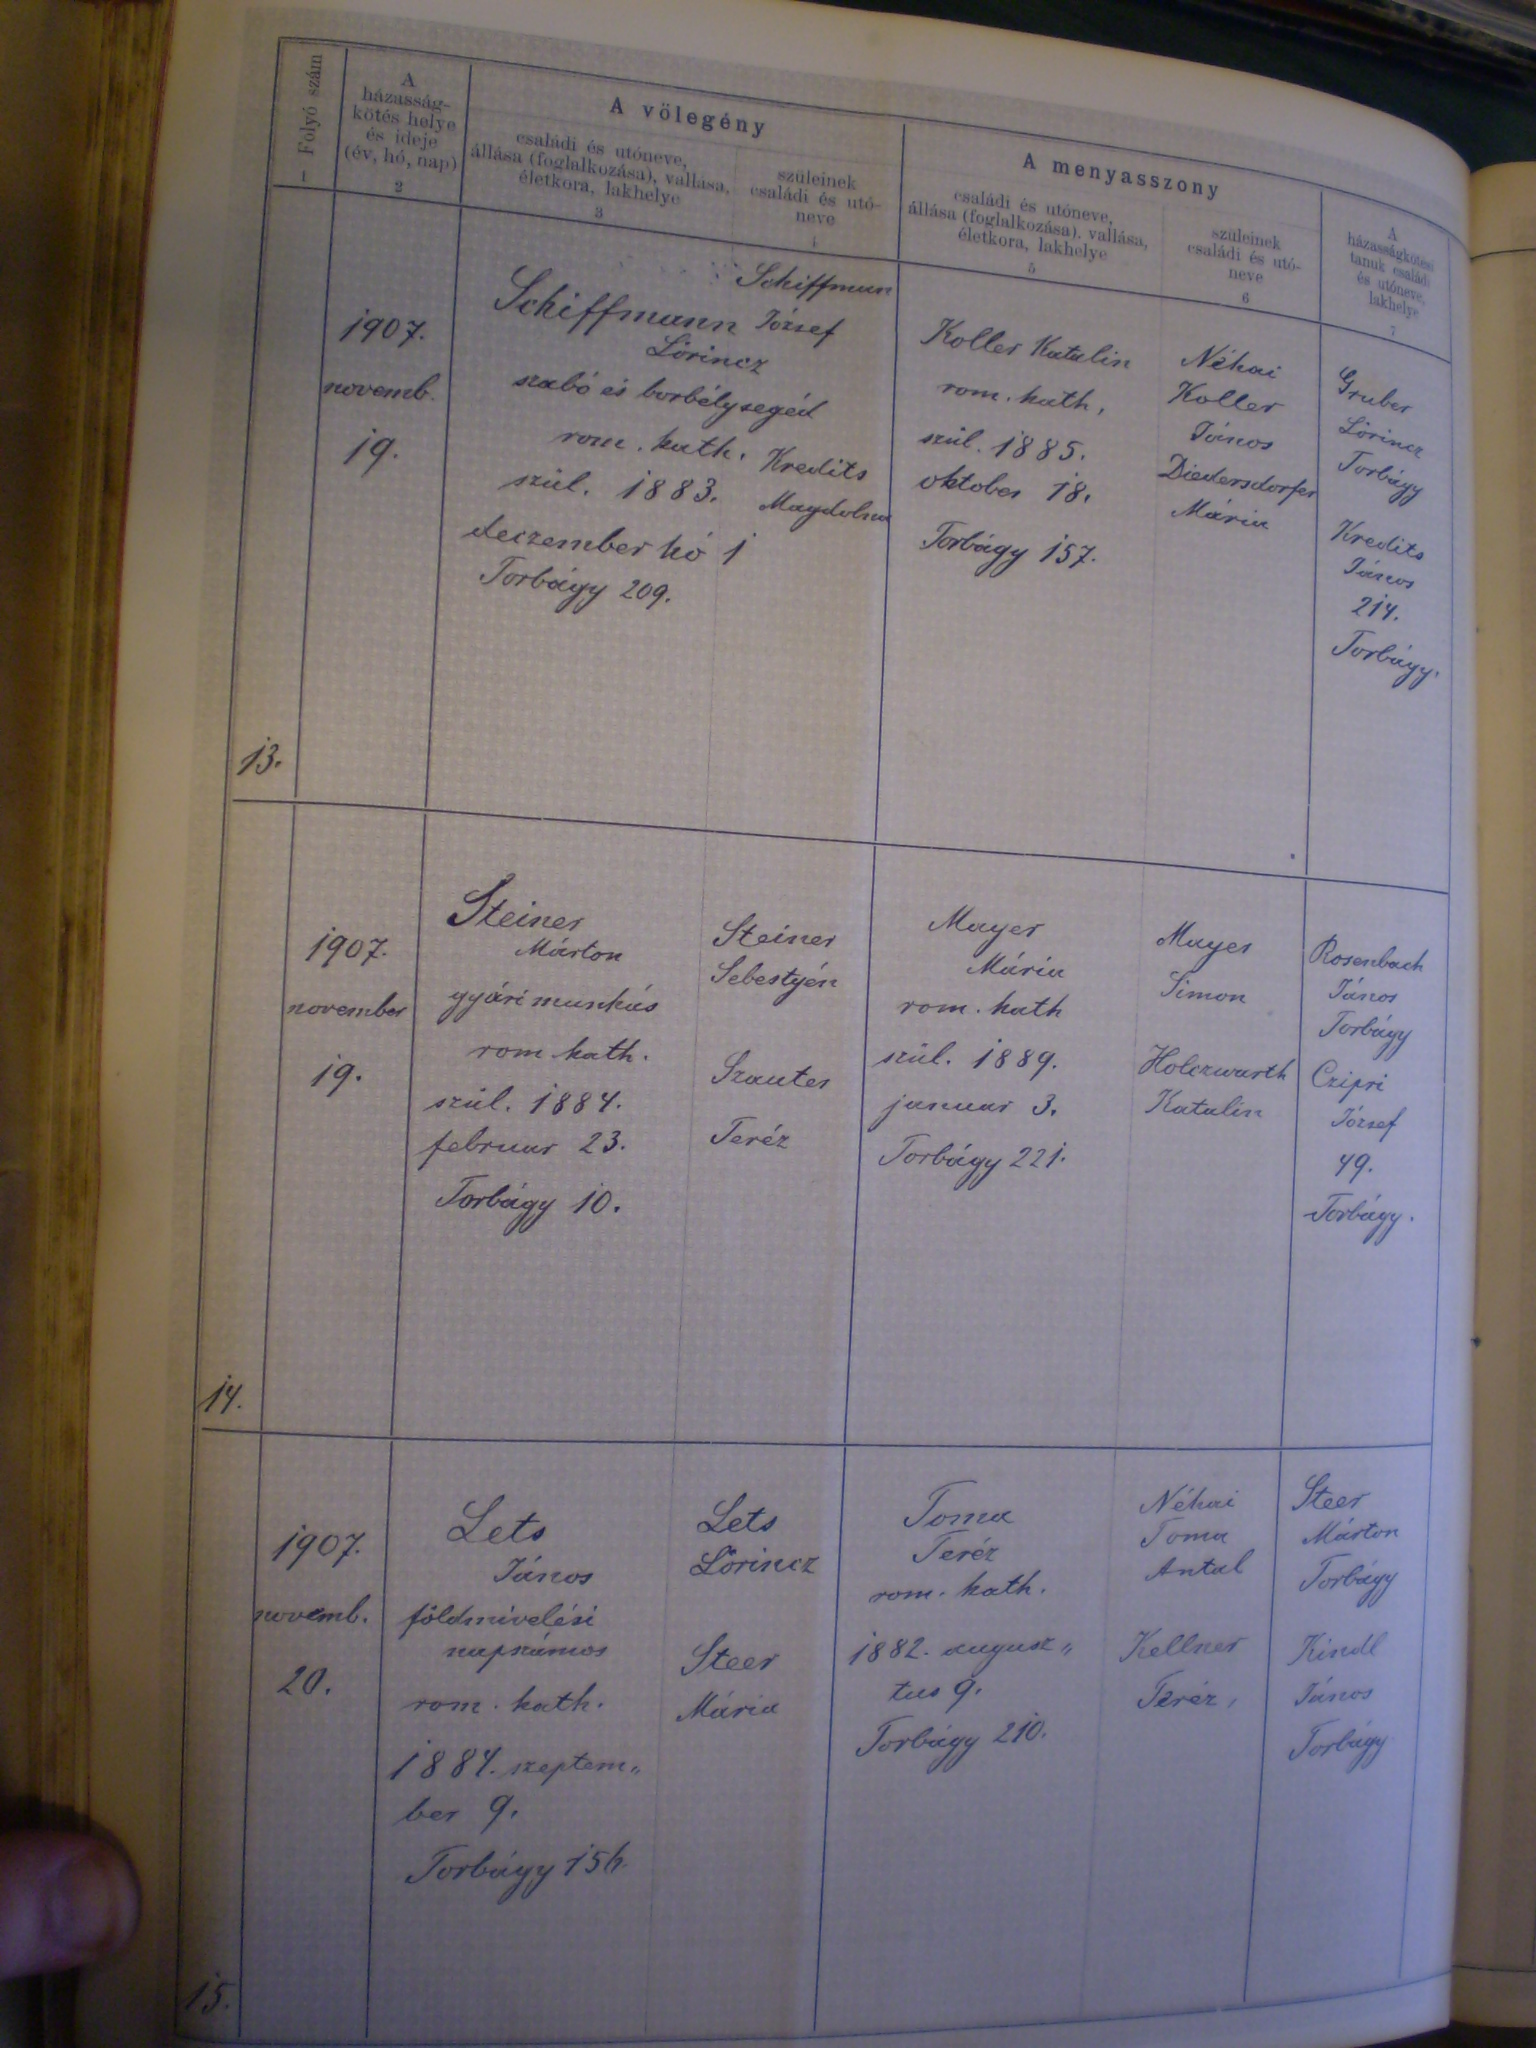 Folyó szám
1
A
házasság-
kötés helye
és ideje
(év, hó, nap)
2
A völegény
családi és utóneve,
állása (foglalkozása), vallása,
életkora, lakhelye
3
szüleinek
családi és utó-
neve
4
A menyasszony
családi és utóneve,
állása (foglalkozása). vallása,
életkora, lakhelye
5
szüleinek
családi és utó-
neve
6
A
házasságkötési
tanuk családi
és utóneve,
lakhelye
7
13.
1907.
novemb.
19.
Schiffmann
Lőrincz
szabó és borbélysegéd
rom. kath.
szül. 1883.
deczember hó 1
Torbágy 209.
Schiffmann
József
Kredits
Magdolna
Koller Katalin
rom. kath,
szül. 1885.
oktober 18.
Torbágy 157.
Néhai
Koller
János
Diedersdorfer
Mária
Gruber
Lőrincz
Torbágy
Kredits
János
214.
Torbágy.
14.
1907.
november
19.
Steiner
Márton
gyári munkás
rom. kath.
szül. 1884.
februar 23.
Torbágy 10.
Steiner
Sebestyén
Szauter
Teréz
Mayer
Mária
rom. kath
szül. 1889.
januar 3.
Torbágy 221.
Mayer
Simon
Holczwarth
Katalin
Rosenbach
János
Torbágy
Czipri
József
49.
Torbágy.
15.
1907.
novemb.
20.
Lets
János
földmivelési
napszámos
rom. kath.
1884. szeptem„
ber 9.
Torbágy
Lets
Lőrincz
Steer
Mária
Toma
Teréz
rom. kath.
1882. augusz„
tus 9.
Torbágy 210.
Néhai
Toma
Antal
Kellner
Teréz,
Steer
Márton
Torbágy
Kindl
János
Torbágy